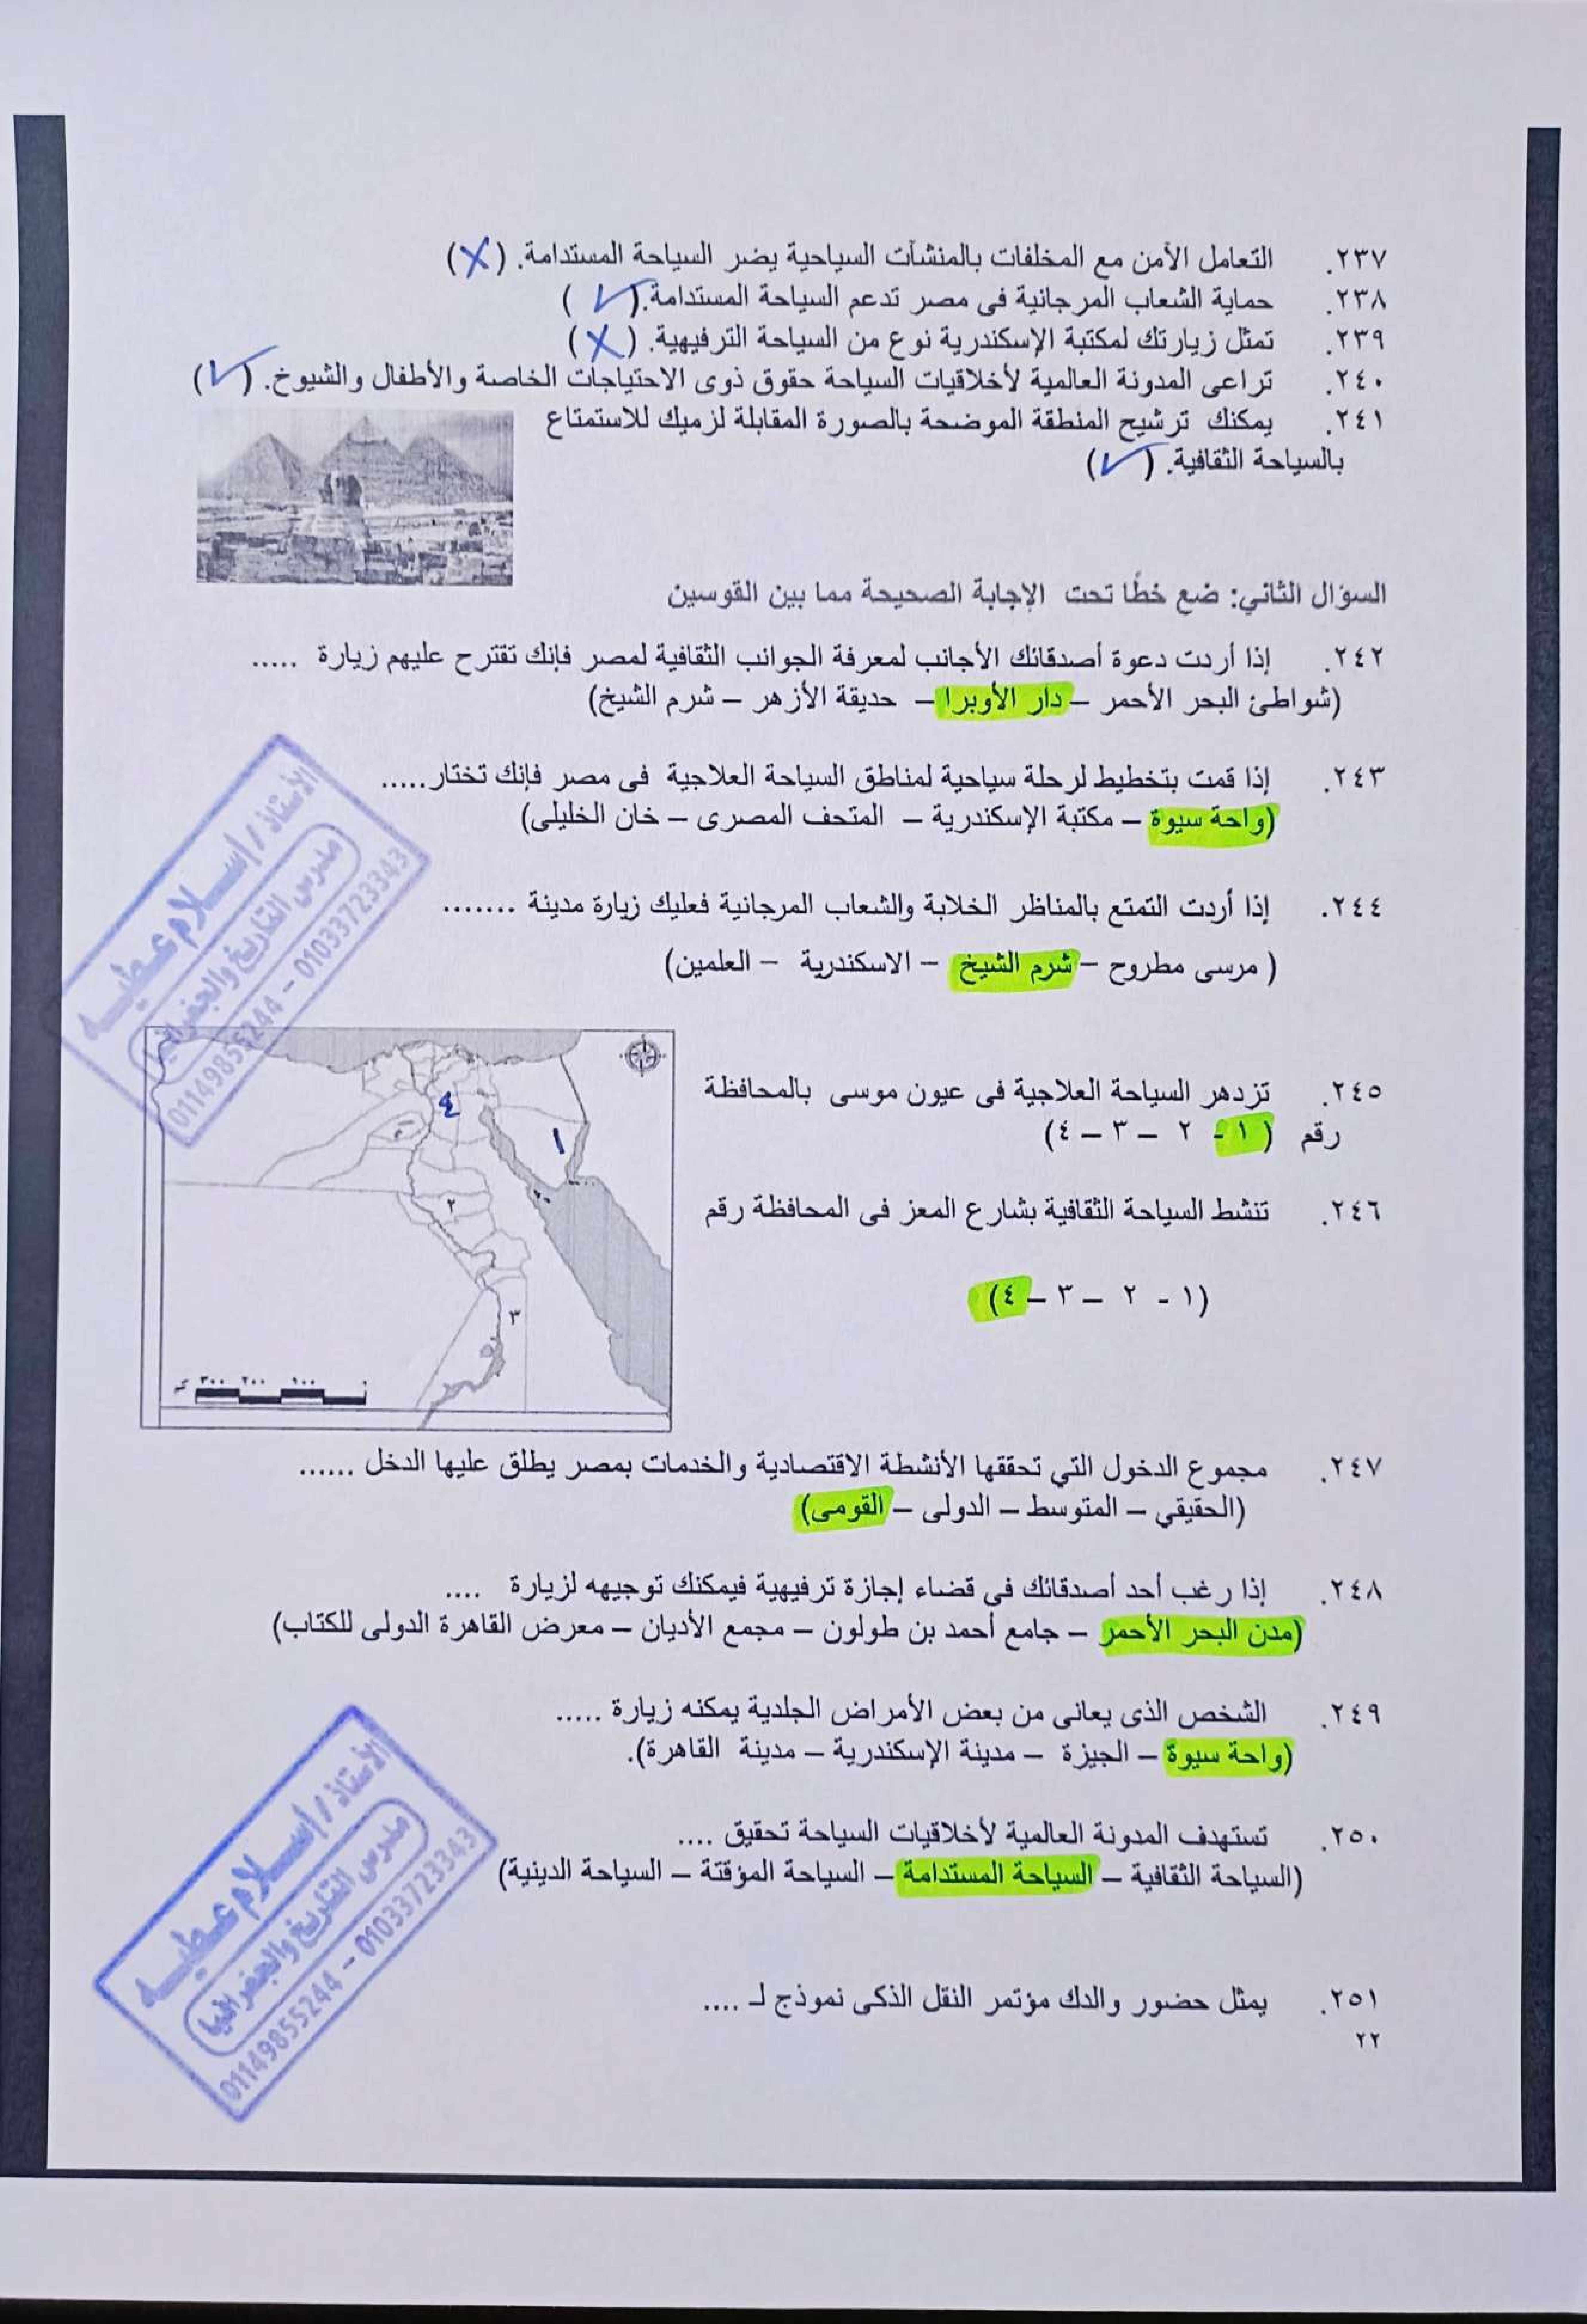 ٢٣٧. التعامل الآمن مع المخلفات بالمنشآت السياحية يضر السياحة المستدامة. (X)
٢٣٨. حماية الشعاب المرجانية فى مصر تدعم السياحة المستدامة. (✓)
٢٣٩. تمثل زيارتك لمكتبة الإسكندرية نوع من السياحة الترفيهية. (X)
٢٤٠. تراعى المدونة العالمية لأخلاقيات السياحة حقوق ذوى الاحتياجات الخاصة والأطفال والشيوخ. (✓)
٢٤١. يمكنك ترشيح المنطقة الموضحة بالصورة المقابلة لزميك للاستمتاع
بالسياحة الثقافية. (✓)
السؤال الثاني: ضع خطًا تحت الإجابة الصحيحة مما بين القوسين
٢٤٢. إذا أردت دعوة أصدقائك الأجانب لمعرفة الجوانب الثقافية لمصر فإنك تقترح عليهم زيارة .....
(شواطئ البحر الأحمر – دار الأوبرا – حديقة الأزهر – شرم الشيخ)
٢٤٣. إذا قمت بتخطيط لرحلة سياحية لمناطق السياحة العلاجية فى مصر فإنك تختار.....
(واحة سيوة – مكتبة الإسكندرية – المتحف المصرى – خان الخليلى)
٢٤٤. إذا أردت التمتع بالمناظر الخلابة والشعاب المرجانية فعليك زيارة مدينة .......
( مرسى مطروح – شرم الشيخ – الاسكندرية – العلمين)
الأستاذ / إسلام عطيه
مدرس التاريخ والجغرافيا
01149855244 – 01033723343
٢٤٥. تزدهر السياحة العلاجية فى عيون موسى بالمحافظة
رقم (١ - ٢ – ٣ – ٤)
٢٤٦. تنشط السياحة الثقافية بشارع المعز فى المحافظة رقم
(١ - ٢ – ٣ – ٤)
٤
١
٢
٣
٣٠٠ ٢٠٠ ١٠٠ ٠
كم
٢٤٧. مجموع الدخول التي تحققها الأنشطة الاقتصادية والخدمات بمصر يطلق عليها الدخل ......
(الحقيقي – المتوسط – الدولى – القومى)
٢٤٨. إذا رغب أحد أصدقائك فى قضاء إجازة ترفيهية فيمكنك توجيهه لزيارة ....
(مدن البحر الأحمر – جامع أحمد بن طولون – مجمع الأديان – معرض القاهرة الدولى للكتاب)
٢٤٩. الشخص الذى يعانى من بعض الأمراض الجلدية يمكنه زيارة .....
(واحة سيوة – الجيزة – مدينة الإسكندرية – مدينة القاهرة).
٢٥٠. تستهدف المدونة العالمية لأخلاقيات السياحة تحقيق ....
(السياحة الثقافية – السياحة المستدامة – السياحة المؤقتة – السياحة الدينية)
الأستاذ / إسلام عطيه
مدرس التاريخ والجغرافيا
01149855244 – 01033723343
٢٥١. يمثل حضور والدك مؤتمر النقل الذكى نموذج لـ ....
٢٢